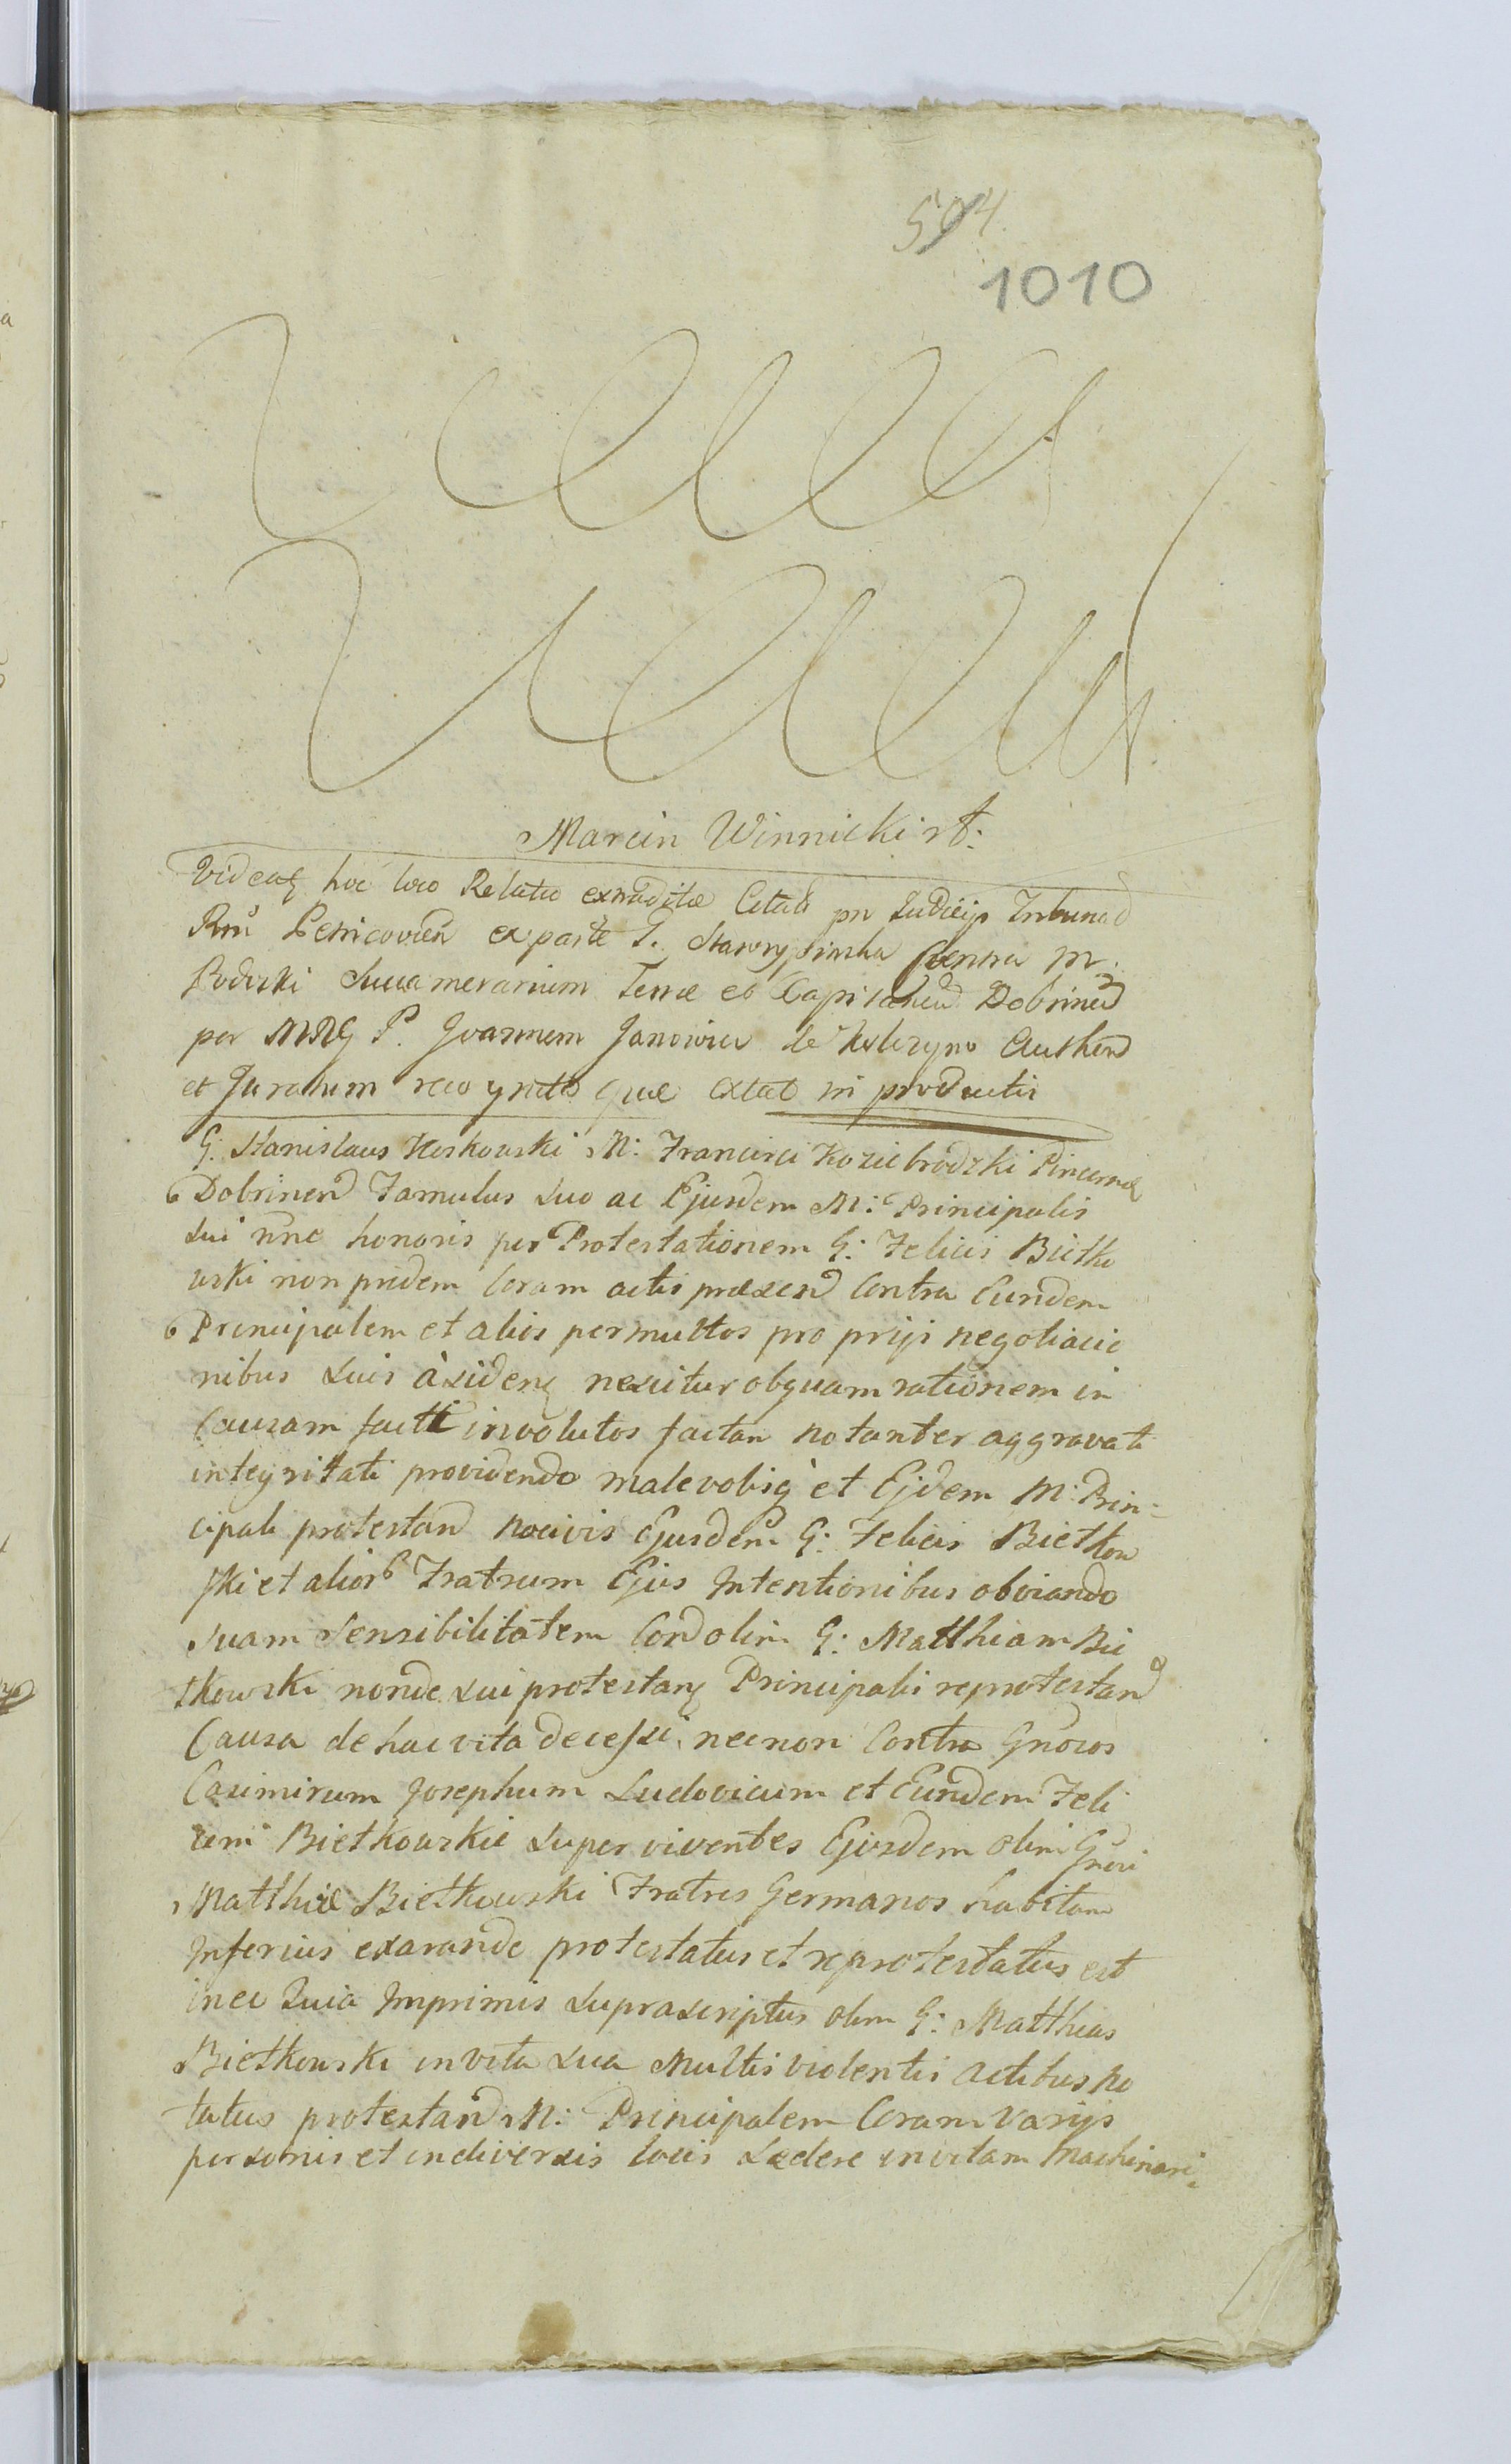 504
1010
Marcin Winnicki
hoc loco Relatio extraditæ pñ Judicijs
ex parte G. Contra M.
Podoski Succamerarium Terræ et Dobrinen
per P. Joannem Janowicz de
et Juratum quæ extat in productis
G: Stanislaus M: Francisci Koziebrodzki Pincernæ
Dobrinen Famulus suo ac Ejusdem M: Principalis
sui noñe honoris per Protestationem G: Felicis Bietko
wski non pridem Coram actis præsen Contra Eundem
Principalem et alios permultos pro prijs negotiacio
nibus suis nescitur obquam rationem in
Causam facti involutos factam notanter aggravati
integritati providendo malevolisq et Ejdem M: Prin-
cipali protestan nocivis Ejusdem G: Felicis Bietkow
ski et alior Fratrum Ejus Intentionibus obviando
suam Sensibilitatem olim G: Matthiam Bie
tkowski sui protestan Principalis reprotestan
Causa de hac vita necnon Contra Gñosos
Casimirum Josephum Ludovicum et Eundem Feli
cem Bietkowskie super viventes Ejusdem olim Gñosi
Matthiæ Bietkowski Fratres Germanos habitam
Inferius protestatus et reprotestatus est
in eo Quia Imprimis suprascriptus olim G: Matthias
Bietkowski in vita sua Multis violentis actibus no
tatus protestan M: Principalem Coram varijs
personis et in diversis locis Lædere in vitam Machinari